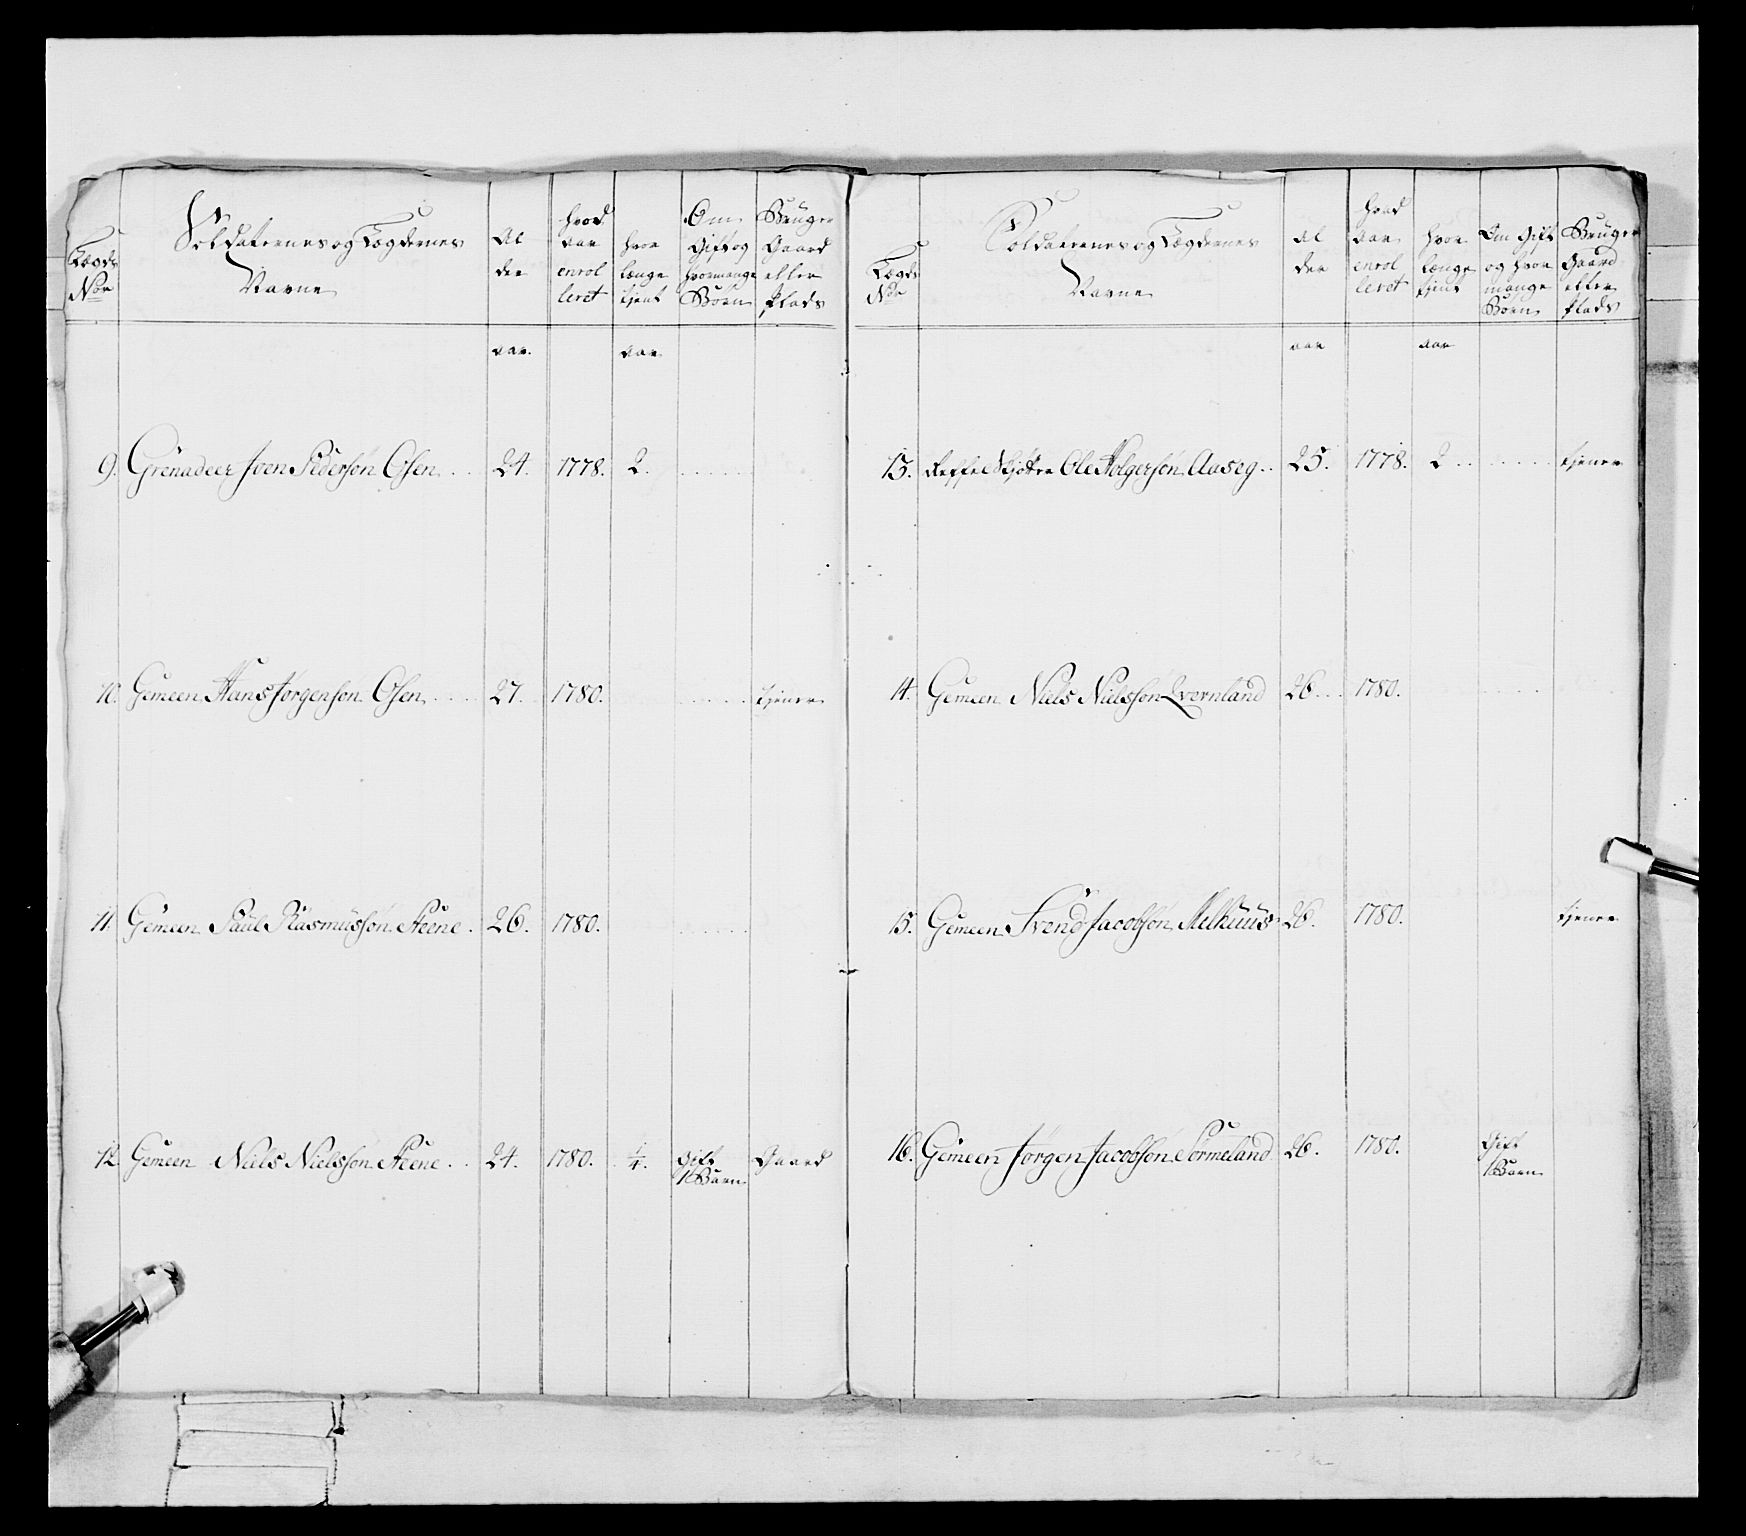 Lægds No
Soldaternes og Lægdernes Navne
Al der
hvad aar enrol leret
hvor længe tjent
Om Gift og hvormange Børn
Bruger Gaard eller Plads
aar.
aar
9. Grenadeer Iven Pedersøn Osen 24. 1778. 2.
10. Gemeen Hans Jørgensøn Osen 27. 1780. tjener
11. Gemeen Paül Rasmüssøn Steene. 26. 1780.
12. Gemeen Niels Nielssøn Steene 24. 1780. 1/4. Gift Gaard
1 Barn
Lægds No
Soldaternes og Lægdernes Navne
Al der
hvad aar enrol leret
hvor længe tjent
Om Gift og hvor mange Børn
Bruger Gaard eller Plads
aar
aar
13. Reffel Skjøtter Ole Holgersøn Aaseg 25. 1778. 2 tjener
14. Gemeen Niels Nielssøn Qvernland 26 1780.
15. Gemeen Svend Jacobsøn Melhüüs 26. 1780. tjener
16. Gemeen Jørgen Jacobsøn Sørmeland 26. 1780. Gift
1 Barn